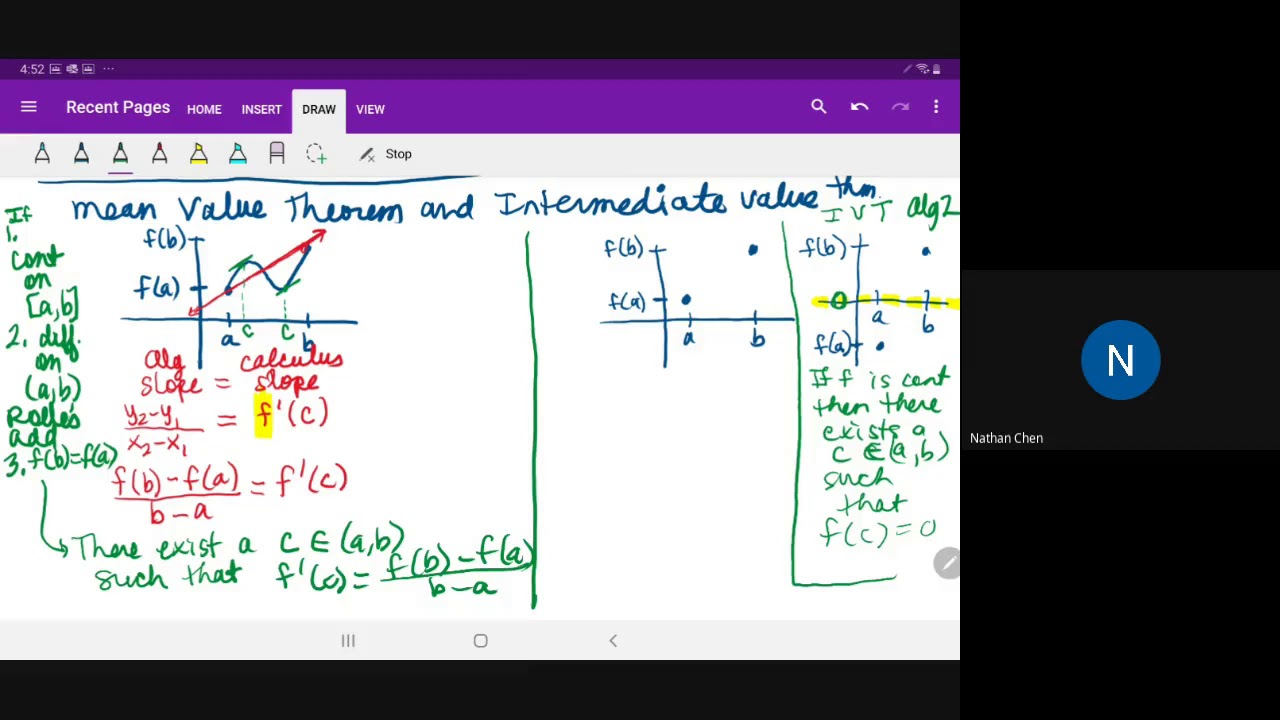 4:52
Recent Pages HOME INSERT DRAW VIEW
Stop
mean Value Theorem and Intermediate value thm.
If
1.
cont
on
[a,b]
2. diff.
on
(a,b)
Rolle's
add
3. f(b)=f(a)
f(b)
f(a)
a c c b
alg calculus
slope = slope
y2-y1 = f'(c)
x2-x1
f(b)-f(a) = f'(c)
b-a
There exist a c ∈ (a,b)
such that f'(c) = f(b)-f(a)
b-a
f(b)
f(a)
a b
IVT alg2
f(b)
a b
f(a)
If f is cont
then there
exists a
c ∈ (a,b)
such
that
f(c) = 0
N
Nathan Chen